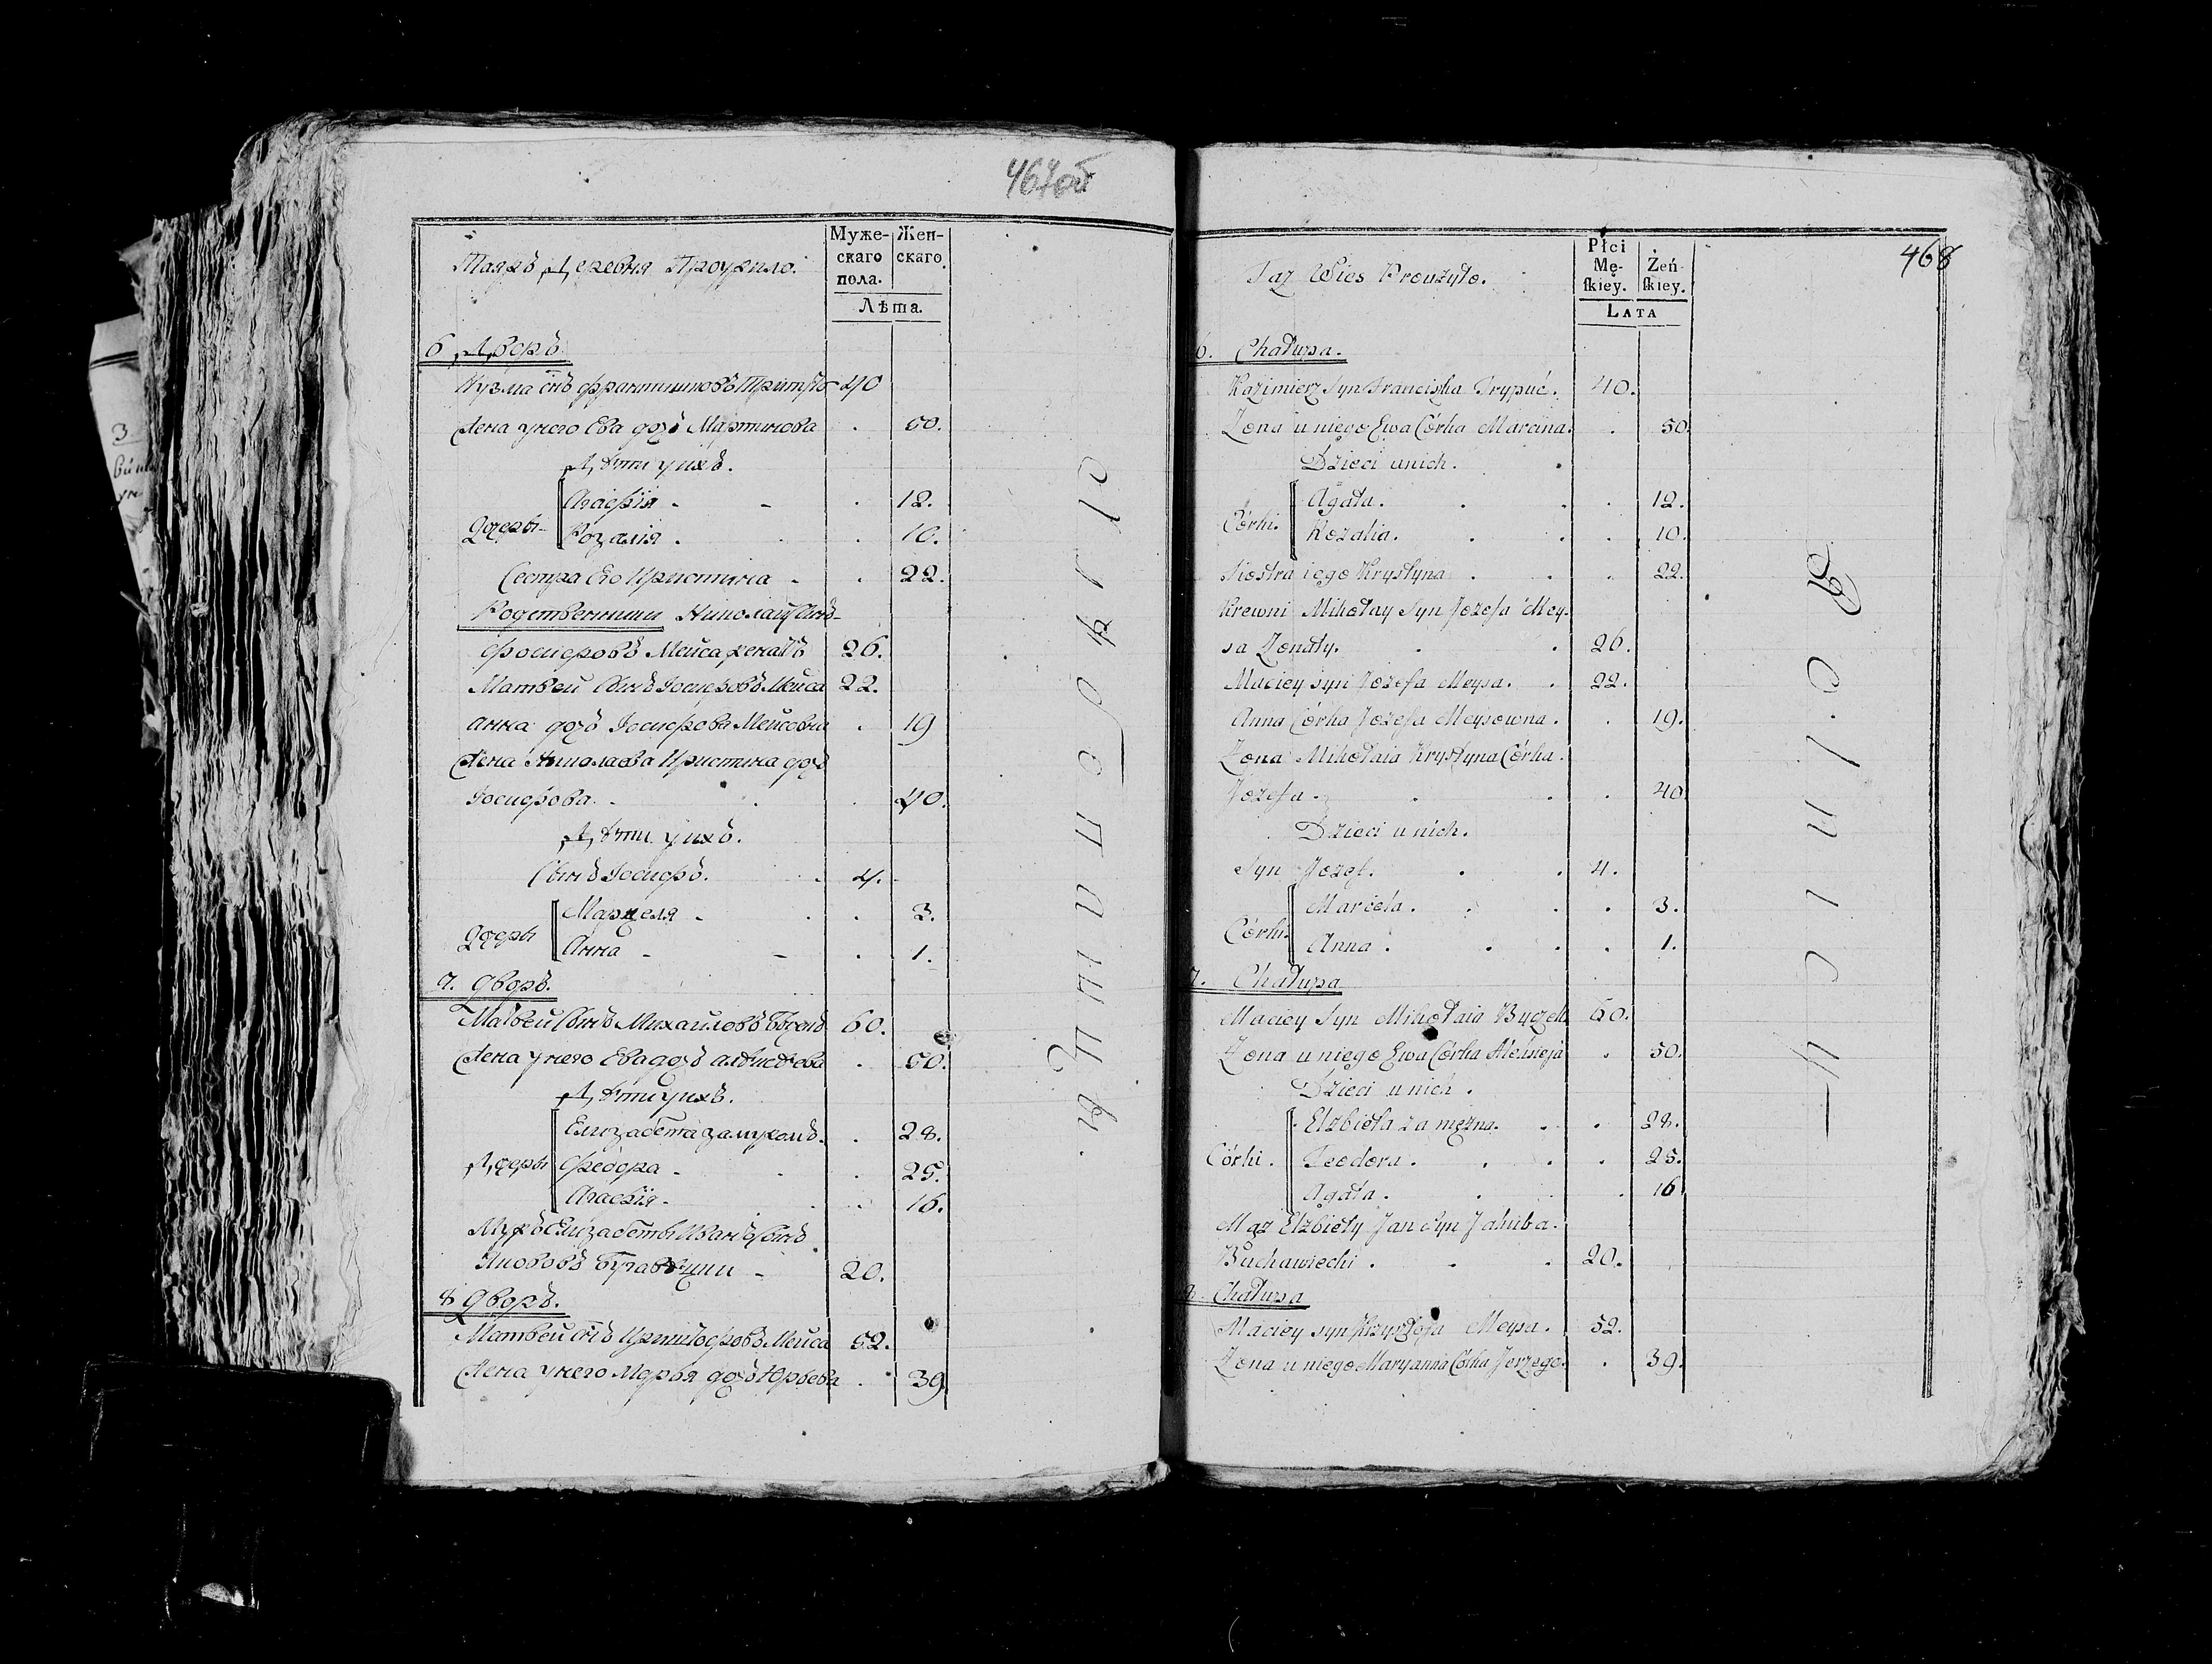 467об
Таяжъ Деревня Проужило.
Муже-
скаго
пола.
Жен-
скаго.
Лѣта.
6 Дворъ
Кузма снъ Франтишковъ Трипуть 40
Жена унего Ева дочь Мартинова . 50.
Дѣти ухъ.
Агафія - - . 12.
Дочери
Розалія . . . 10.
Сестра Его Кристина - . 22.
Родственники Николай Снъ
Фосифовъ Мейса женатъ 26.
Матвей Сынъ Іосифовъ Мейса 22.
Анна дочь Іосифова Мейсовна . 19
Жена Николаева Кристина дочь
Іосифова. - . . 40.
Дѣти ухъ.
Сынъ Іосифъ. . 4.
Марцеля - . . 3.
Дочери
Анна - - . 1.
7. Дворъ.
Матвей Сынъ Михайловъ 60.
Жена унего Ева дочь . 50.
Дѣти ухъ.
Елизабета замужомъ. . 28.
Дочери Феодора - . . 25.
Агафія - . . 16.
Мужъ Елизабеты Иванъ Сынъ
Яковъ - 20.
8 Дворъ.
Матвей снъ Криштофовъ Мейса 52.
Жена унего Марья дочь Юрьева . 39
468
Taz Wies Prouzyło.
Płci
Mę-
skiey.
Żeń-
skiey.
LATA
6. Chałupa.
Kazimierz Syn Franciszka Trypuć. 40.
Zona u niego Ewa Córka Marcina. . 50.
Dzieci unich. .
Agata. . . . 12.
Córki.
Rozalia. . . . 10.
Siostra iego Krystyna . . . 22.
Krewni Mikołay Syn Jozefa Mey-
sa Zonaty. . . 26.
Maciey syn Jozefa Meysa. . 22.
Anna Córka Jozefa Meysowna . . 19.
Zona Mikołaia Krystyna Córka.
Jozefa . . . . 40
Dzieci u nich.
Syn Jozef. . . 4.
Marcela . . . . 3.
Córki.
Anna . . . . 1.
7. Chałupa
Maciey Syn Mikołaia Byczek 60.
Zona u niego Ewa Córka Alexieja . 50.
Dzieci u nich .
Elzbieta za mężna. . . 28.
Córki. Teodora . . . . 25.
Agata . . . 16.
Mąz Elzbiety Jan Syn Jakuba.
Buchawiecki . . . 20.
8. Chałupa
Maciey syn Krzysztofa Meysa. 52.
Zona u niego Maryanna Córka Jerzego. . 39.